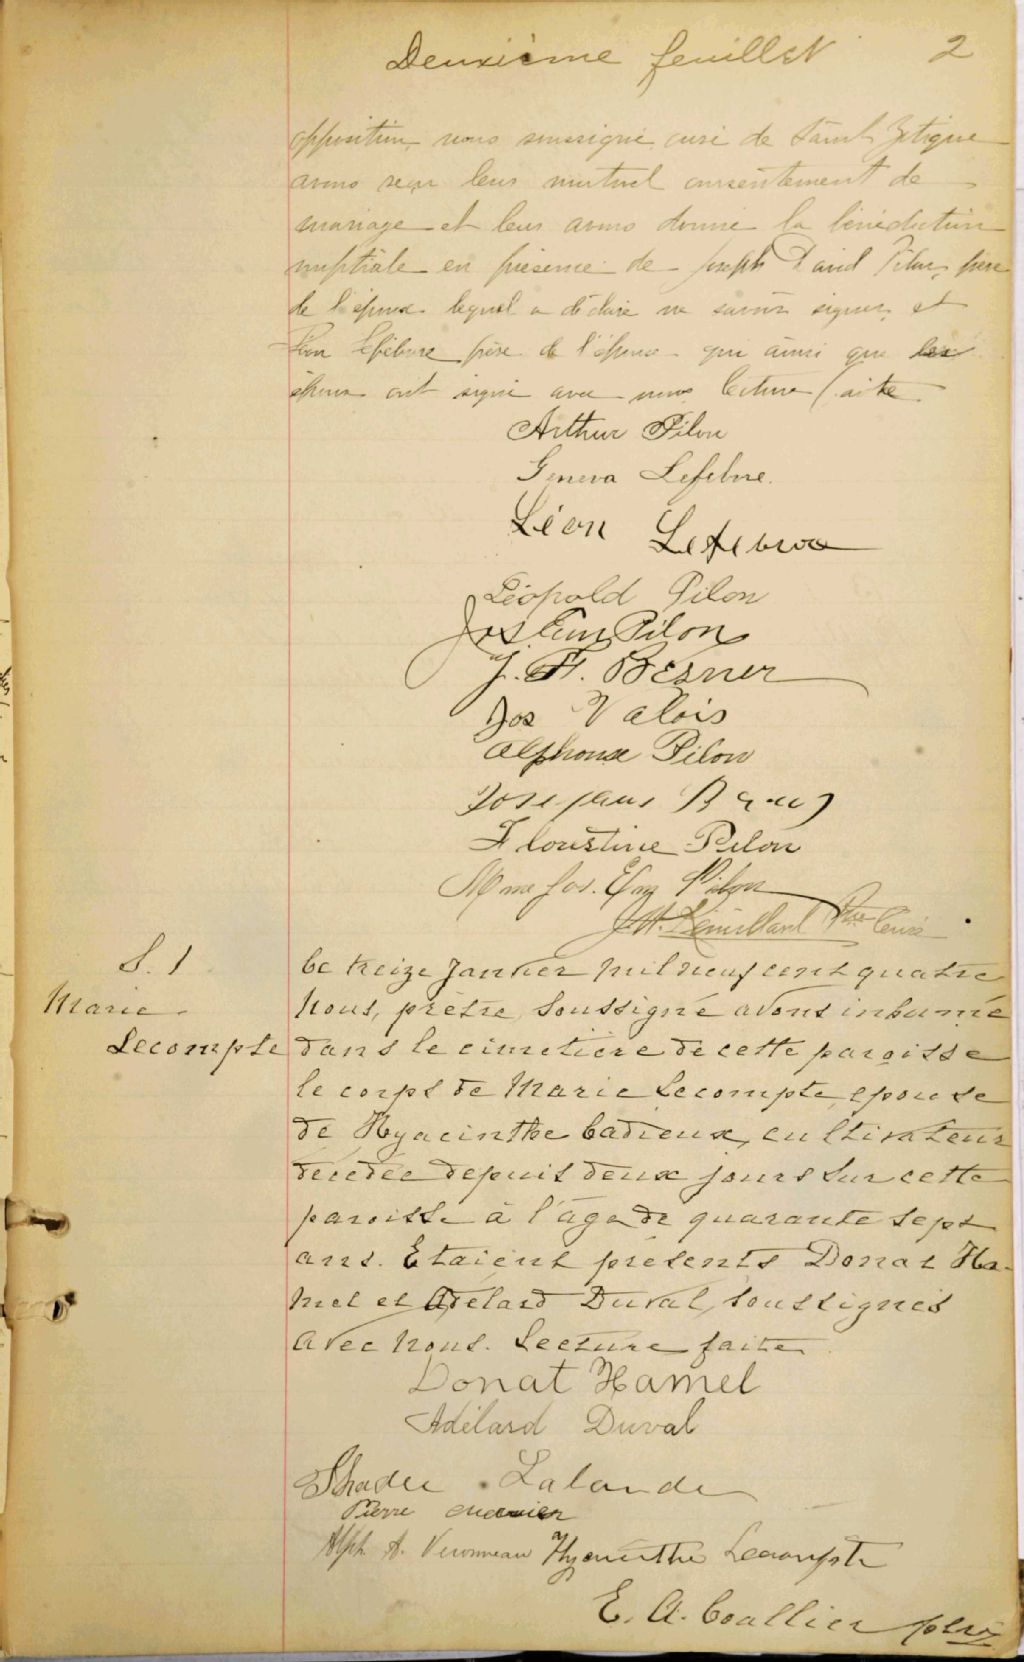 Deuxième feuillet 2
opposition, nous soussigné, curé de Saint Zotique
avons reçu leur mutuel consentement de
mariage et leur avons donné la bénédiction
nuptiale en présence de Joseph David Pilon, père
de l'époux lequel a déclaré ne savoir signer, et
Léon Lefebvre père de l'épouse qui ainsi que les
époux ont signé avec nous lecture faite
Arthur Pilon
Geneva Lefebvre.
Léon Lefebvre
Léopold Pilon
Jos Em Pilon
J. H. Besner
Jos Valois
Alphonse Pilon
Floristine Pilon
Mme Jos. Em Pilon
Ptre Curé
S. 1
Marie
Lecompte
Le treize Janvier mil neuf cent quatre
Nous, prêtre, Soussigné avons inhumé
dans le cimetière de cette paroisse
le corps de Marie Lecompte, epouse
de Hyacinthe Cadieux, cultivateur
décédée depuis deux jours sur cette
paroisse à l'âge de quarante sept
ans. Etaient présents Donat Ha-
mel et Adélard Duval, soussignés
avec nous. Lecture faite
Donat Hamel
Adélard Duval
Thadée Lalonde
Pierre
Alph A. Veronneau Hyacinthe Lecompte
E. A. Coallier ptre